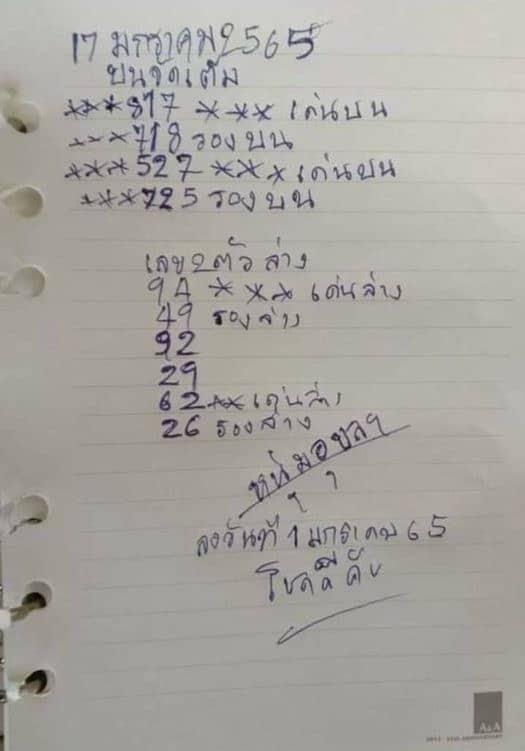 17 มกราคม 2565
บนจัดเต็ม
***817 *** เด่นบน
***718 รองบน
***527 *** เด่นบน
***725 รองบน
เลข2ตัว ล่าง
94 *** เด่นล่าง
49 รองล่าง
92
29
62** เด่นล่าง
26 รองล่าง
ลงวันที่ 1 มกราคม 65
โชคดี คับ
A&A